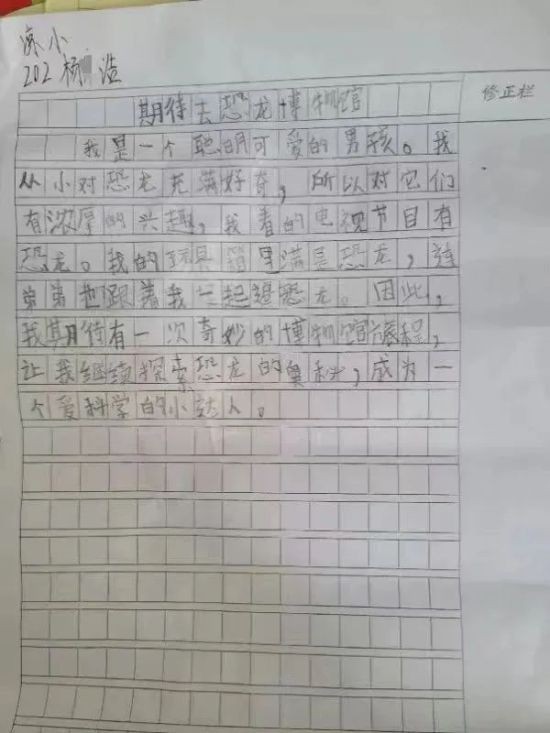 小
202 杨 浩
修正栏
期待去恐龙博物馆
我是一个聪明可爱的男孩。我
从小对恐龙充满好奇，所以对它们
有浓厚的兴趣，我看的电视节目有
恐龙。我的玩具箱里满是恐龙，连
弟弟也跟着我一起追恐龙。因此，
我期待有一次奇妙的博物馆旅程，
让我继续探索恐龙的奥秘，成为一
个爱科学的小达人。